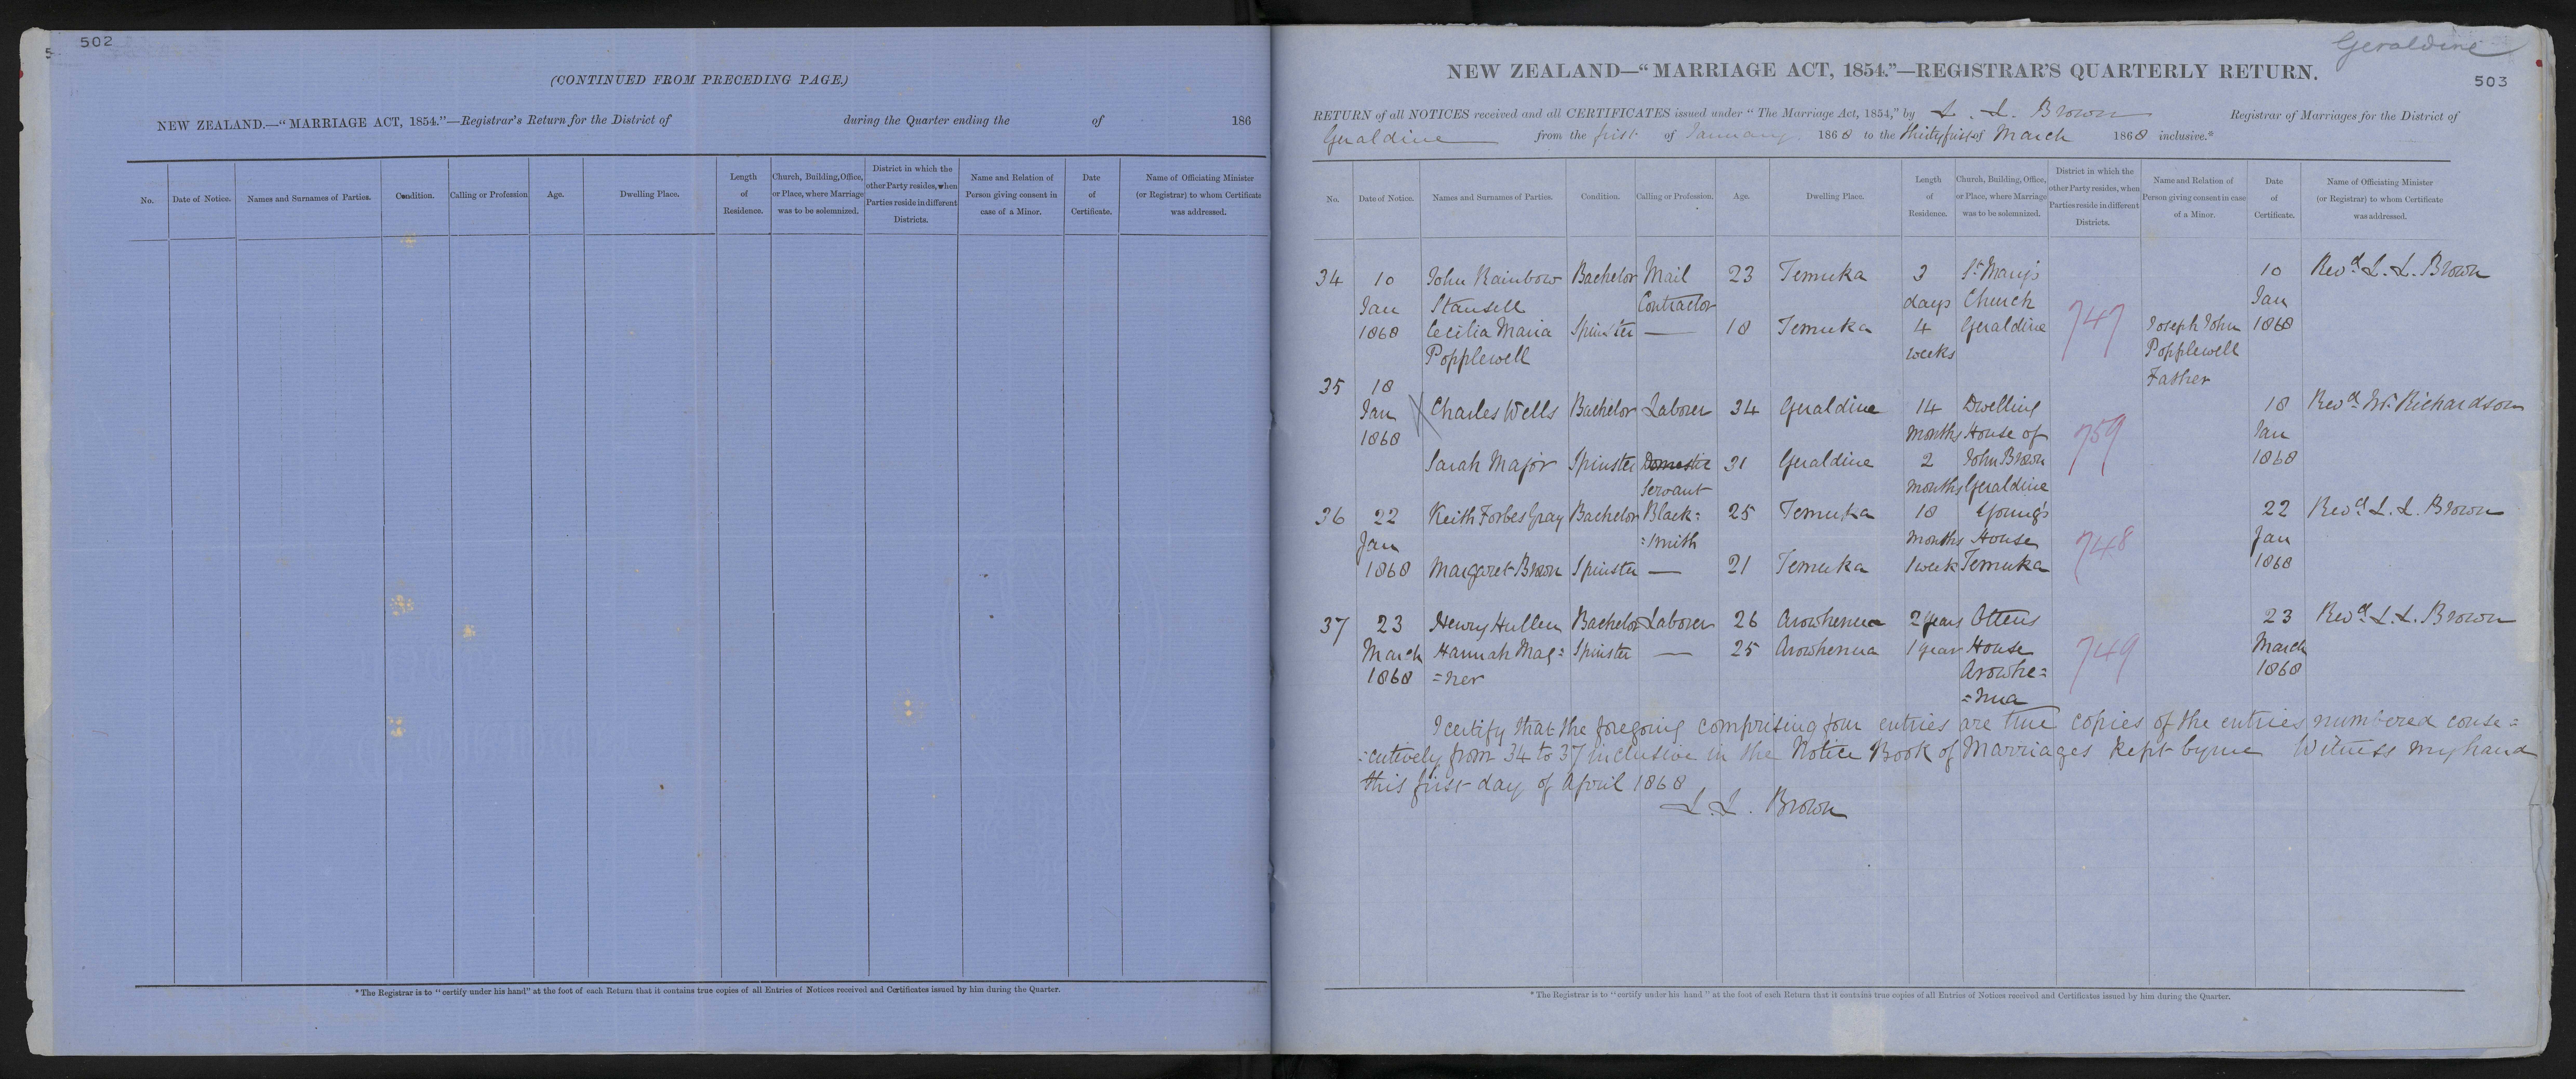 502
(CONTINUED FROM PRECEDING PAGE.)
NEW ZEALAND.—“MARRIAGE ACT, 1854.”—Registrar's Return for the District of during the Quarter ending the of 186
No.
Date of Notice.
Names and Surnames of Parties.
Condition.
Calling or Profession
Age.
Dwelling Place.
Length
of
Residence.
Church, Building, Office,
or Place, where Marriage
was to be solemnized.
District in which the
other Party resides, when
Parties reside in different
Districts.
Name and Relation of
Person giving consent in
case of a Minor.
Date
of
Certificate.
Name of Officiating Minister
(or Registrar) to whom Certificate
was addressed.
*The Registrar is to “certify under his hand” at the foot of each Return that it contains true copies of all Entries of Notices received and Certificates issued by him during the Quarter.
Geraldine
NEW ZEALAND—“MARRIAGE ACT, 1854.”—REGISTRAR'S QUARTERLY RETURN.
503
RETURN of all NOTICES received and all CERTIFICATES issued under “The Marriage Act, 1854,” by L. L. Brown Registrar of Marriages for the District of
Geraldine from the first of January 1868 to the thirty first of March 1868 inclusive.*
No.
Date of Notice.
Names and Surnames of Parties.
Condition.
Calling or Profession.
Age.
Dwelling Place.
Length
of
Residence.
Church, Building, Office,
or Place, where Marriage
was to be solemnized.
District in which the
other Party resides, when
Parties reside in different
Districts.
Name and Relation of
Person giving consent in case
of a Minor.
Date
of
Certificate.
Name of Officiating Minister
(or Registrar) to whom Certificate
was addressed.
34 10 John Rainbow Bachelor Mail 23 Temuka 3 St Mary's 10 Revd L. L. Brown
Jan Stansell Contractor days Church Jan
1868 Cecilia Maria Spinster — 18 Temuka 4 Geraldine 747 Joseph John 1868
Popplewell weeks Popplewell
35 18 Father
Jan Charles Wells Bachelor Laborer 34 Geraldine 14 Dwelling 18 Revd Wm Richardson
1868 months House of 759 Jan
Sarah Major Spinster Domestic 31 Geraldine 2 John Brown 1868
Servant months Geraldine
36 22 Keith Forbes Gray Bachelor Black= 25 Temuka 18 Young's 22 Revd L. L. Brown
Jan =smith months House 748 Jan
1868 Margaret Brown Spinster — 21 Temuka 1 week Temuka 1868
37 23 Henry Hullen Bachelor Laborer 26 Arowhenua 2 years Ottens 23 Revd L. L. Brown
March Hannah Mag= Spinster — 25 Arowhenua 1 year House 749 March
1868 =ner Arowhe= 1868
=nua
I certify that the foregoing comprising four entries are true copies of the entries numbered conse=
=cutively from 34 to 37 inclusive in the Notice Book of Marriages kept by me Witness my hand
this first day of April 1868
L. L. Brown
*The Registrar is to “certify under his hand” at the foot of each Return that it contains true copies of all Entries of Notices received and Certificates issued by him during the Quarter.